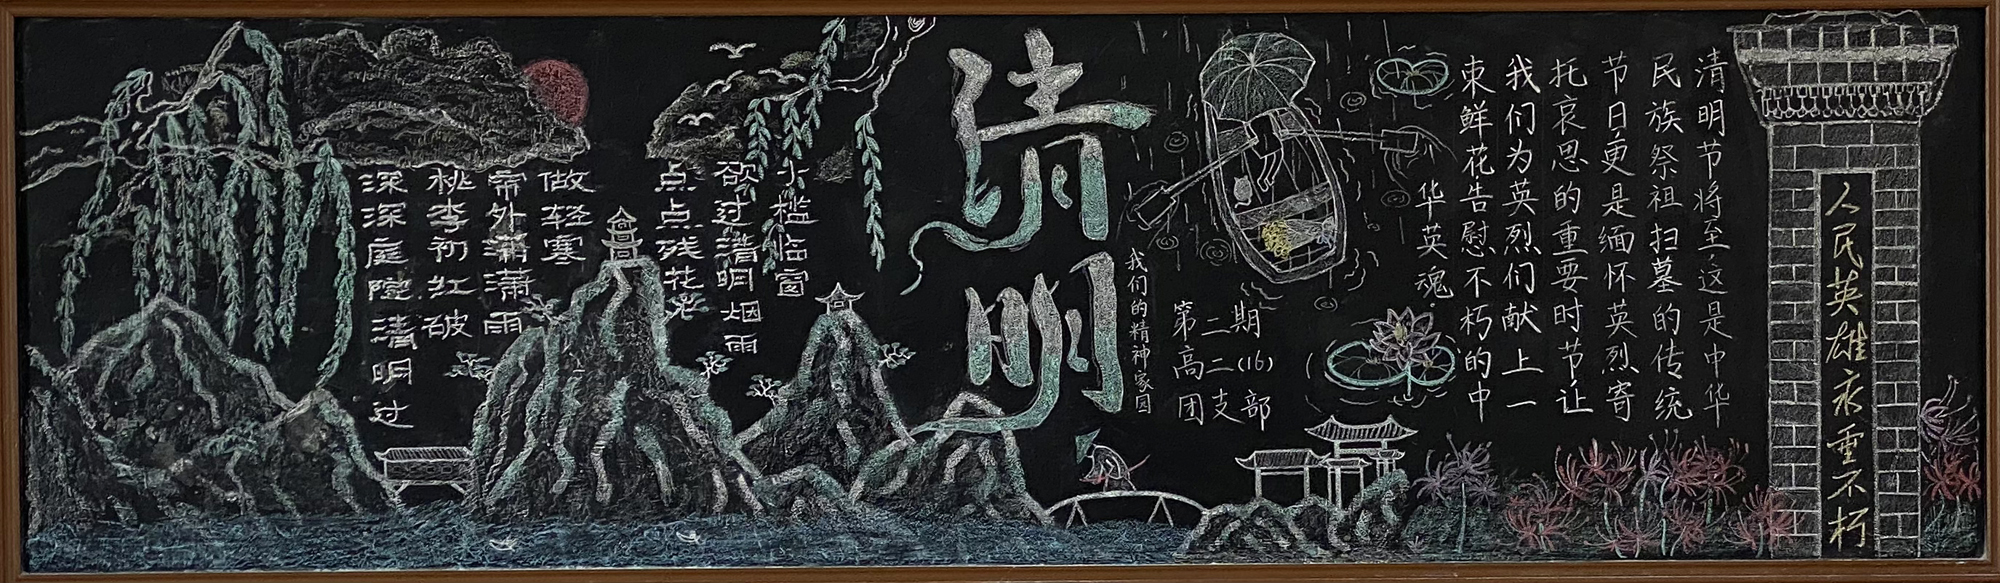 人民英雄永垂不朽
清明节将至,这是中华
民族祭祖扫墓的传统
节日更是缅怀英烈寄
托哀思的重要时节让
我们为英烈们献上一
束鲜花告慰不朽的中
华英魂.
清明
我们的精神家园
第二期
高二(16)
团支部
小槛临窗
欲过清明烟雨
点点残花
深深庭院清明过
桃李初红破
帘外潇潇雨
做轻寒